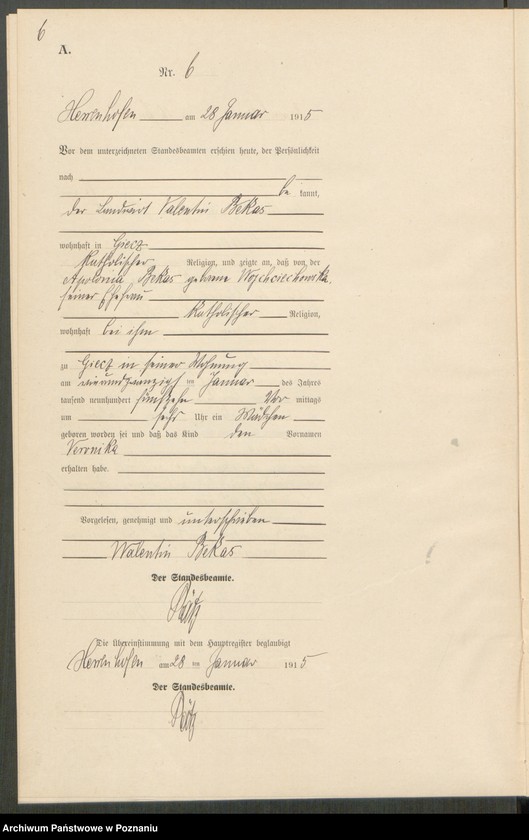 6
A.
Nr. 6
Herrenhofen am 28 Januar 1915
Vor dem unterzeichneten Standesbeamten erschien heute, der Persönlichkeit
nach
be kannt,
der Landwirt Valentin Bekas
wohnhaft in Giecz
katholischer Religion, und zeigte an, daß von der
Apolonia Bekas geborene Wojchciechowska
seiner Ehefrau
katholischer Religion,
wohnhaft bei ihm
zu Giecz in seiner Wohnung
am vierundzwanzigsten Januar des Jahres
tausend neunhundert fünfzehn Vor mittags
um sechs Uhr ein Mädchen
geboren worden sei und daß das Kind den Vornamen
Veronika
erhalten habe.
Vorgelesen, genehmigt und unterschrieben
Walentin Bekas
Der Standesbeamte.
Die Übereinstimmung mit dem Hauptregister beglaubigt
Herrenhofen am 28 ten Januar 1915
Der Standesbeamte.
Archiwum Państwowe w Poznaniu